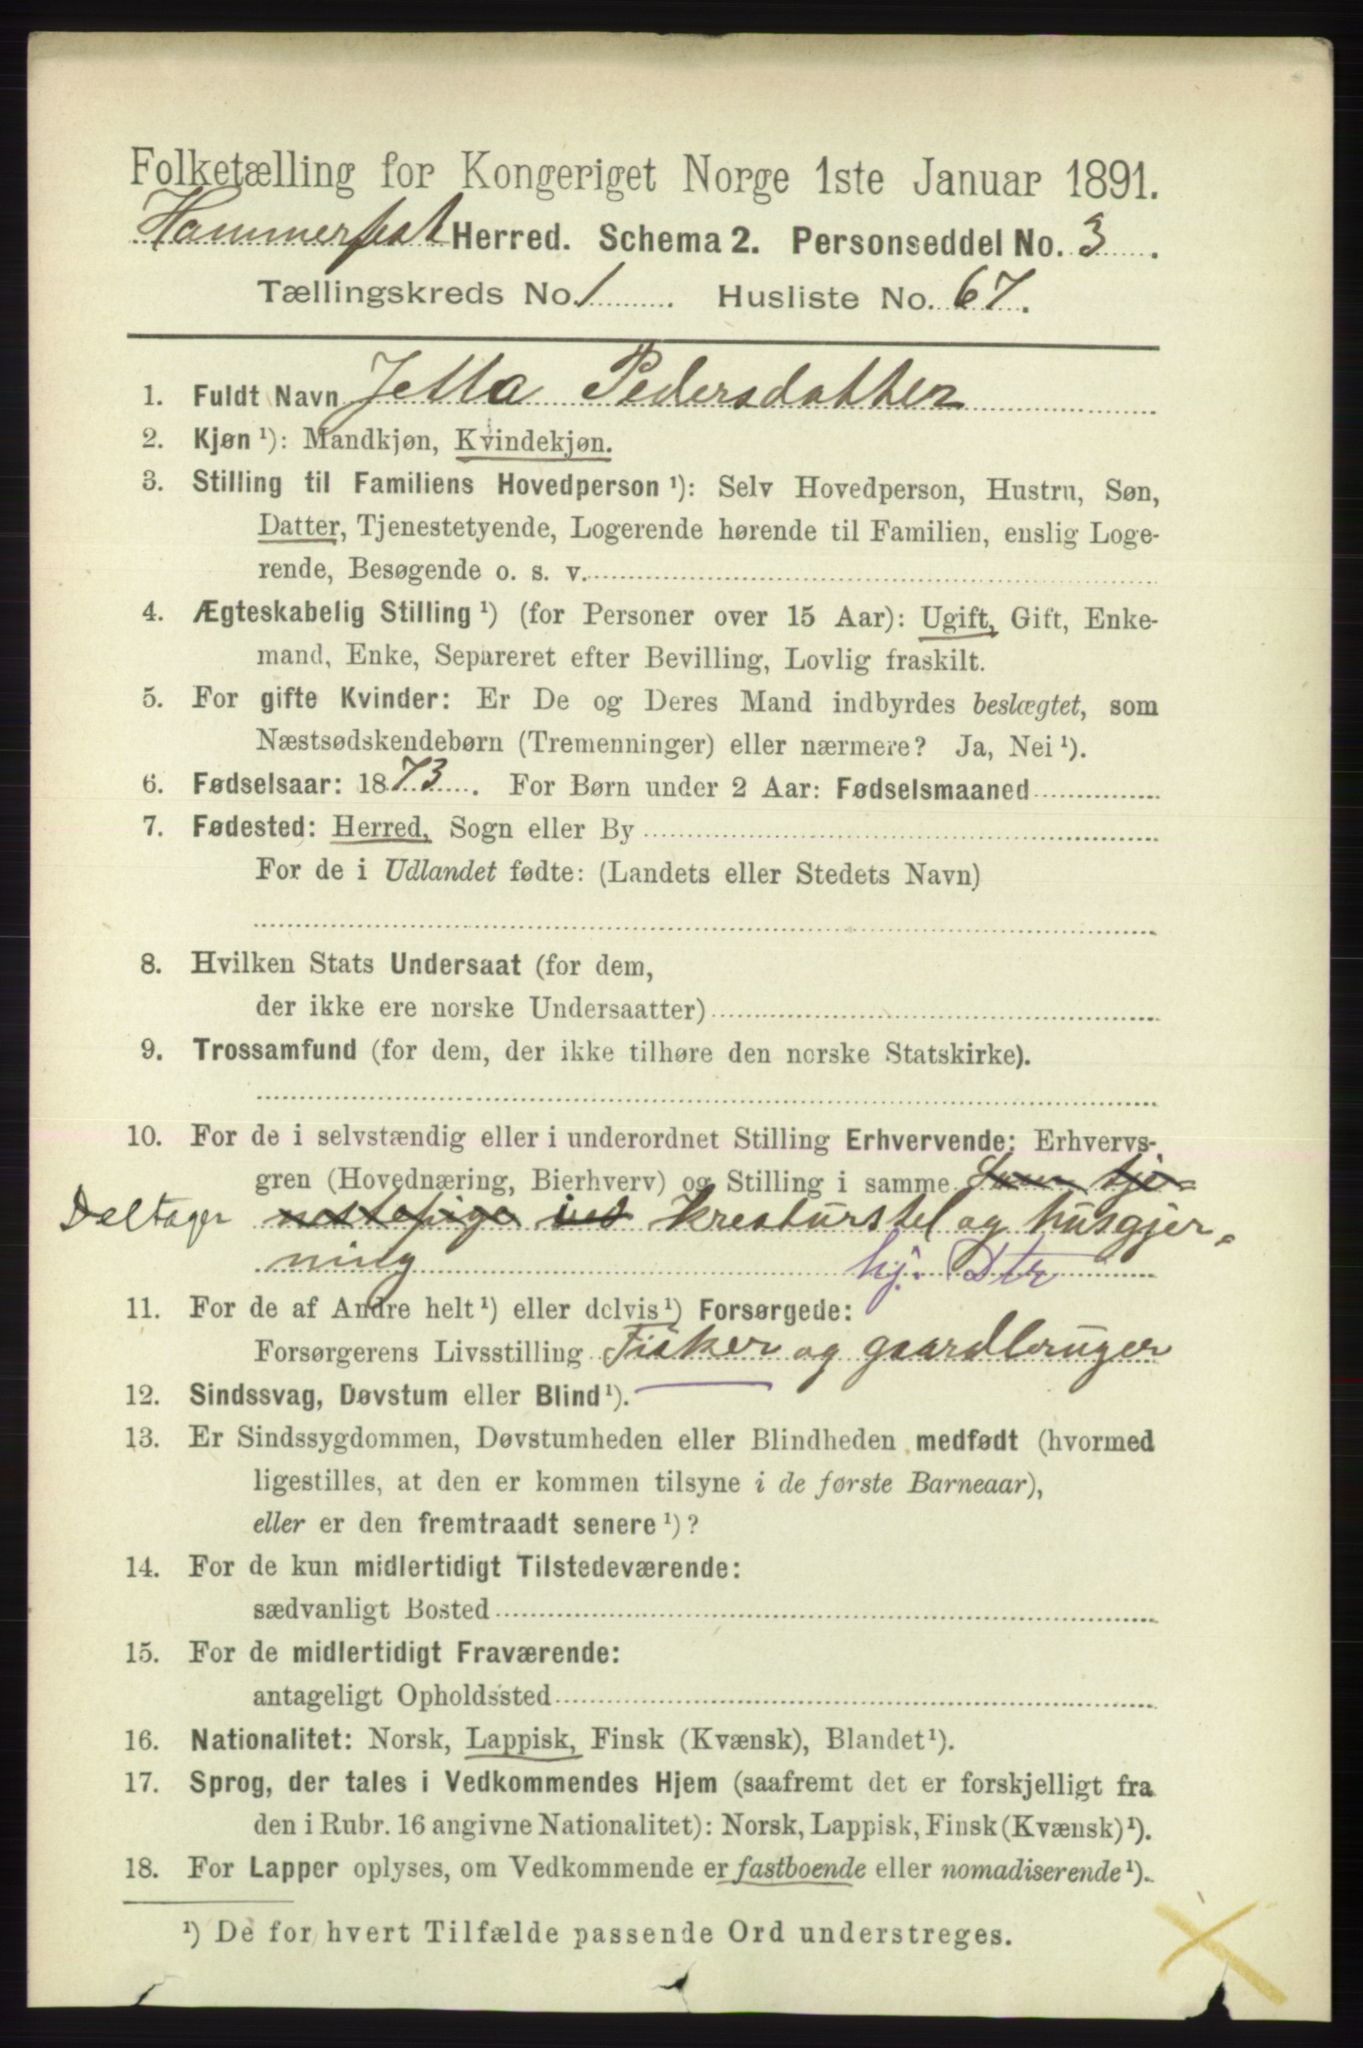 Folketælling for Kongeriget Norge 1ste Januar 1891.
Hammerfest Herred. Schema 2. Personseddel No. 3.
Tællingskreds No. 1. Husliste No. 67.
1. Fuldt Navn Jetta Pedersdatter
2. Kjøn ¹): Mandkjøn, Kvindekjøn.
3. Stilling til Familiens Hovedperson ¹): Selv Hovedperson, Hustru, Søn,
Datter, Tjenestetyende, Logerende hørende til Familien, enslig Loge-
rende, Besøgende o. s. v.
4. Ægteskabelig Stilling ¹) (for Personer over 15 Aar): Ugift, Gift, Enke-
mand, Enke, Separeret efter Bevilling, Lovlig fraskilt.
5. For gifte Kvinder: Er De og Deres Mand indbyrdes beslægtet, som
Næstsødskendebørn (Tremenninger) eller nærmere? Ja, Nei ¹).
6. Fødselsaar: 1873. For Børn under 2 Aar: Fødselsmaaned
7. Fødested: Herred, Sogn eller By
For de i Udlandet fødte: (Landets eller Stedets Navn)
8. Hvilken Stats Undersaat (for dem,
der ikke ere norske Undersaatter)
9. Trossamfund (for dem, der ikke tilhøre den norske Statskirke).
10. For de i selvstændig eller i underordnet Stilling Erhvervende: Erhvervs-
gren (Hovednæring, Bierhverv) og Stilling i samme Som tje-
Deltager nestepige ved kreaturstel og husgjer-
ning hj. Dtr
11. For de af Andre helt ¹) eller delvis ¹) Forsørgede:
Forsørgerens Livsstilling Fisker og gaardbruger
12. Sindssvag, Døvstum eller Blind ¹).
13. Er Sindssygdommen, Døvstumheden eller Blindheden medfødt (hvormed
ligestilles, at den er kommen tilsyne i de første Barneaar),
eller er den fremtraadt senere ¹)?
14. For de kun midlertidigt Tilstedeværende:
sædvanligt Bosted
15. For de midlertidigt Fraværende:
antageligt Opholdssted
16. Nationalitet: Norsk, Lappisk, Finsk (Kvænsk), Blandet ¹).
17. Sprog, der tales i Vedkommendes Hjem (saafremt det er forskjelligt fra
den i Rubr. 16 angivne Nationalitet): Norsk, Lappisk, Finsk (Kvænsk) ¹).
18. For Lapper oplyses, om Vedkommende er fastboende eller nomadiserende ¹).
¹) De for hvert Tilfælde passende Ord understreges.